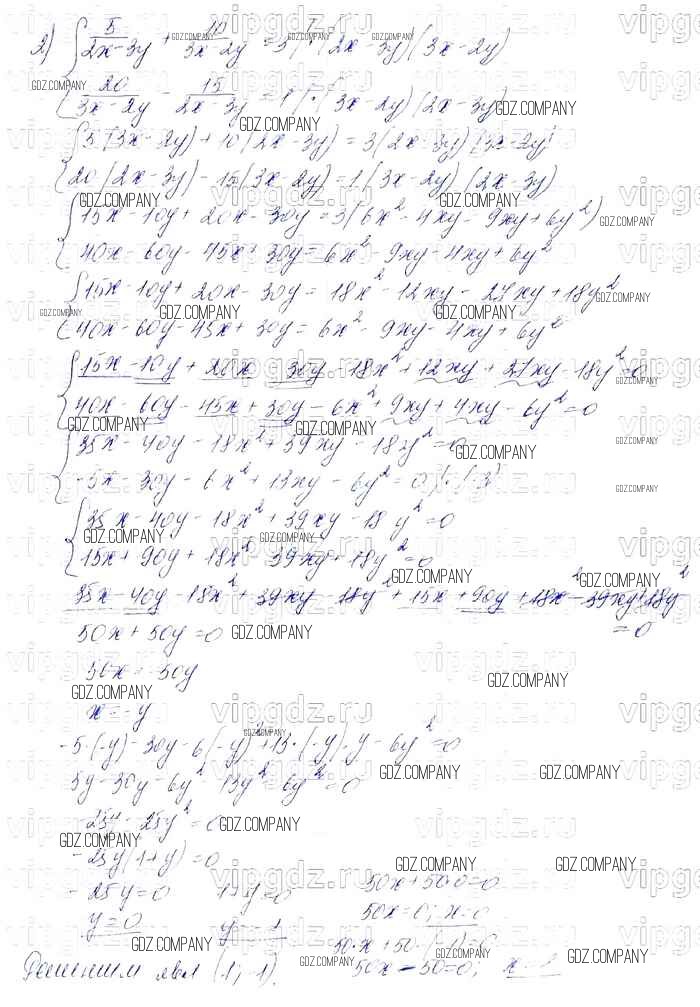 2) { 5/(2x-3y) + 10/(3x-2y) = 3 | · (2x-3y)(3x-2y)
20/(3x-2y) - 15/(2x-3y) = 1 | · (3x-2y)(2x-3y)
{ 5(3x-2y) + 10(2x-3y) = 3(2x-3y)(3x-2y)
20(2x-3y) - 15(3x-2y) = 1(3x-2y)(2x-3y)
{ 15x-10y+20x-30y = 3(6x²-4xy-9xy+6y²)
40x-60y-45x+30y = 6x²-9xy-4xy+6y²
{ 15x-10y+20x-30y = 18x²-12xy-27xy+18y²
40x-60y-45x+30y = 6x²-9xy-4xy+6y²
{ 15x-10y+20x-30y-18x²+12xy+27xy-18y²=0
40x-60y-45x+30y-6x²+9xy+4xy-6y²=0
{ 35x-40y-18x²+39xy-18y²=0
-5x-30y-6x²+13xy-6y²=0 | · (-3)
{ 35x-40y-18x²+39xy-18y²=0
15x+90y+18x²-39xy+18y²=0
35x-40y-18x²+39xy-18y²+15x+90y+18x²-39xy+18y²
=0
50x+50y=0
50x=-50y
x=-y
-5·(-y)-30y-6(-y)²+13·(-y)·y-6y²=0
5y-30y-6y²-13y²-6y²=0
-25y-25y²=0
-25y(1+y)=0
-25y=0 1+y=0 50x+50·0=0
y=0 y=-1 50x=0; x=0
50·x+50·(-1)=0
Решением явл. (1;-1). 50x-50=0; x=1
GDZ.COMPANY
vipgdz.ru